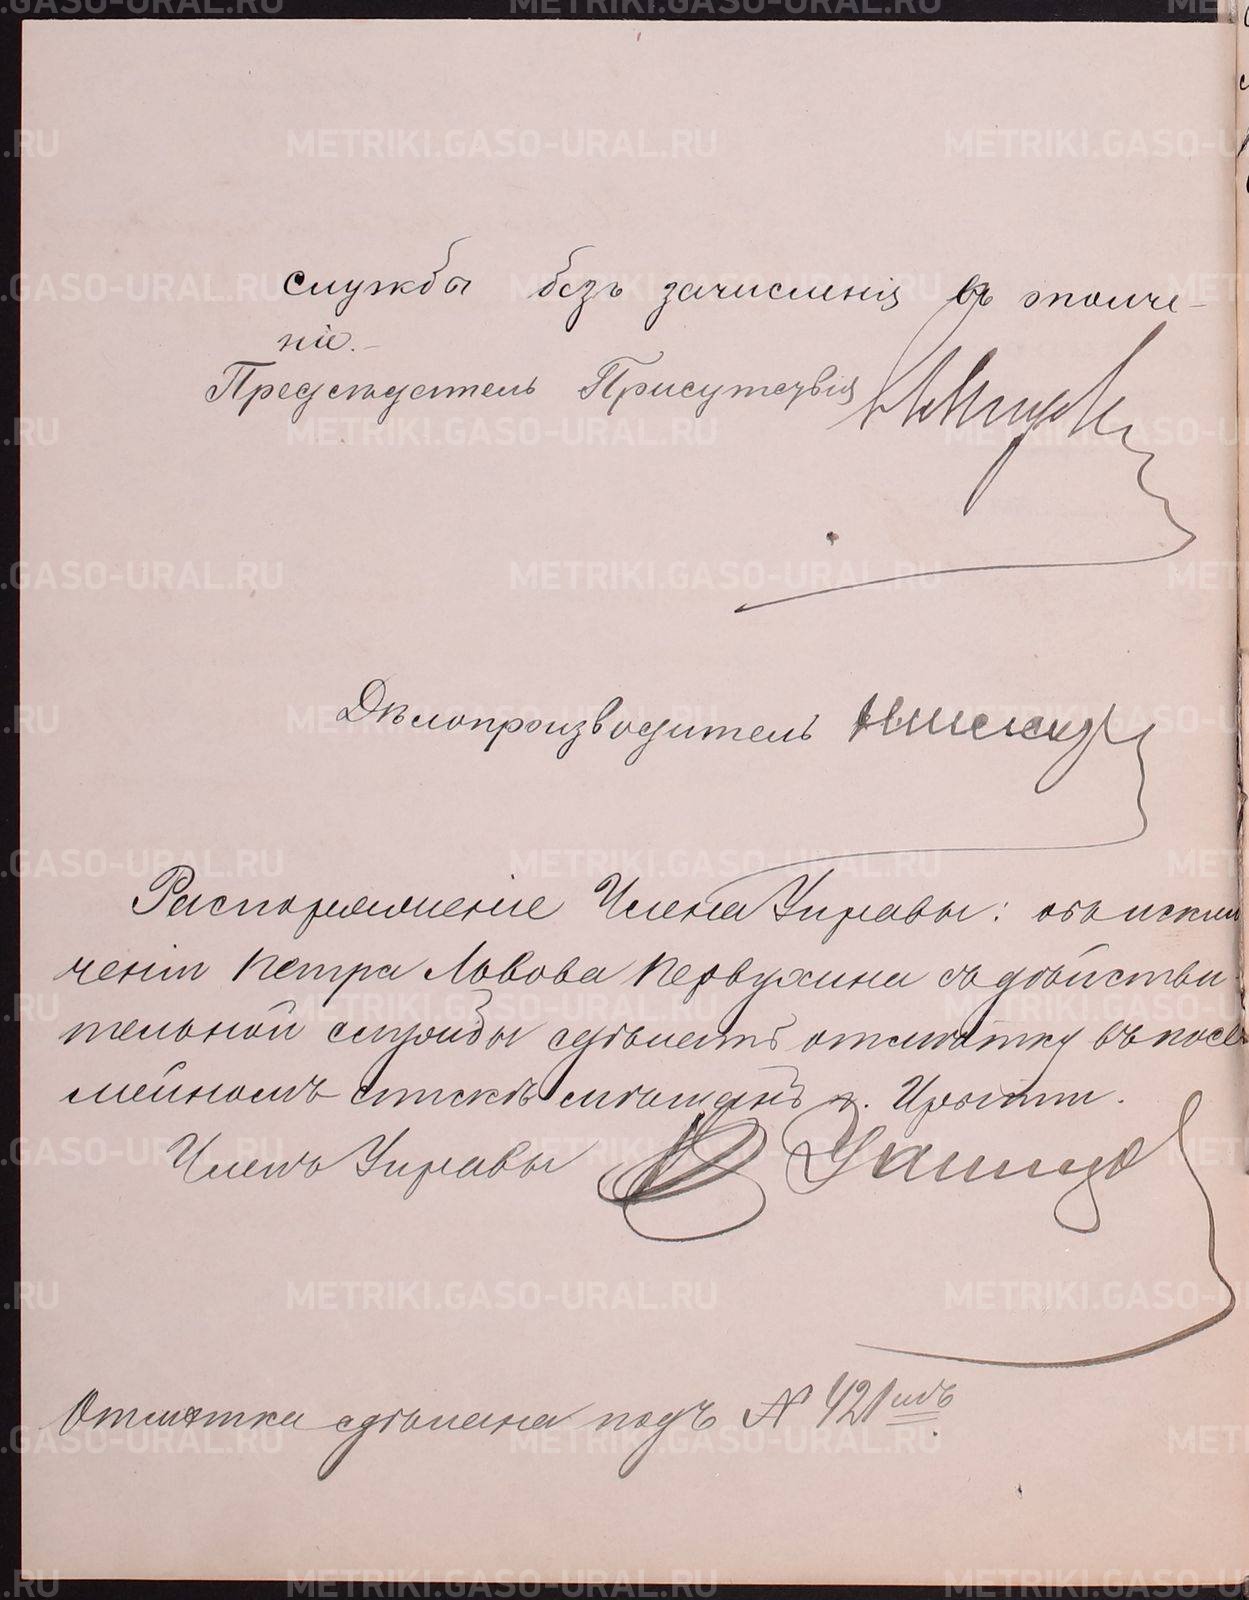 службы безъ зачисленія въ ополче-
ніе.-
Предсѣдатель Присутствія
Дѣлопроизводитель
Распоряженіе Члена Управы: объ исклю
ченіи Петра Львова Первухина съ дѣйстви-
тельной службы сдѣлать отмѣтку въ посе-
мейномъ спискѣ мѣщанъ г. Ирбити.
Членъ Управы
Отмѣтка сдѣлана подъ № 421мъ.
METRIKI.GASO-URAL.RU